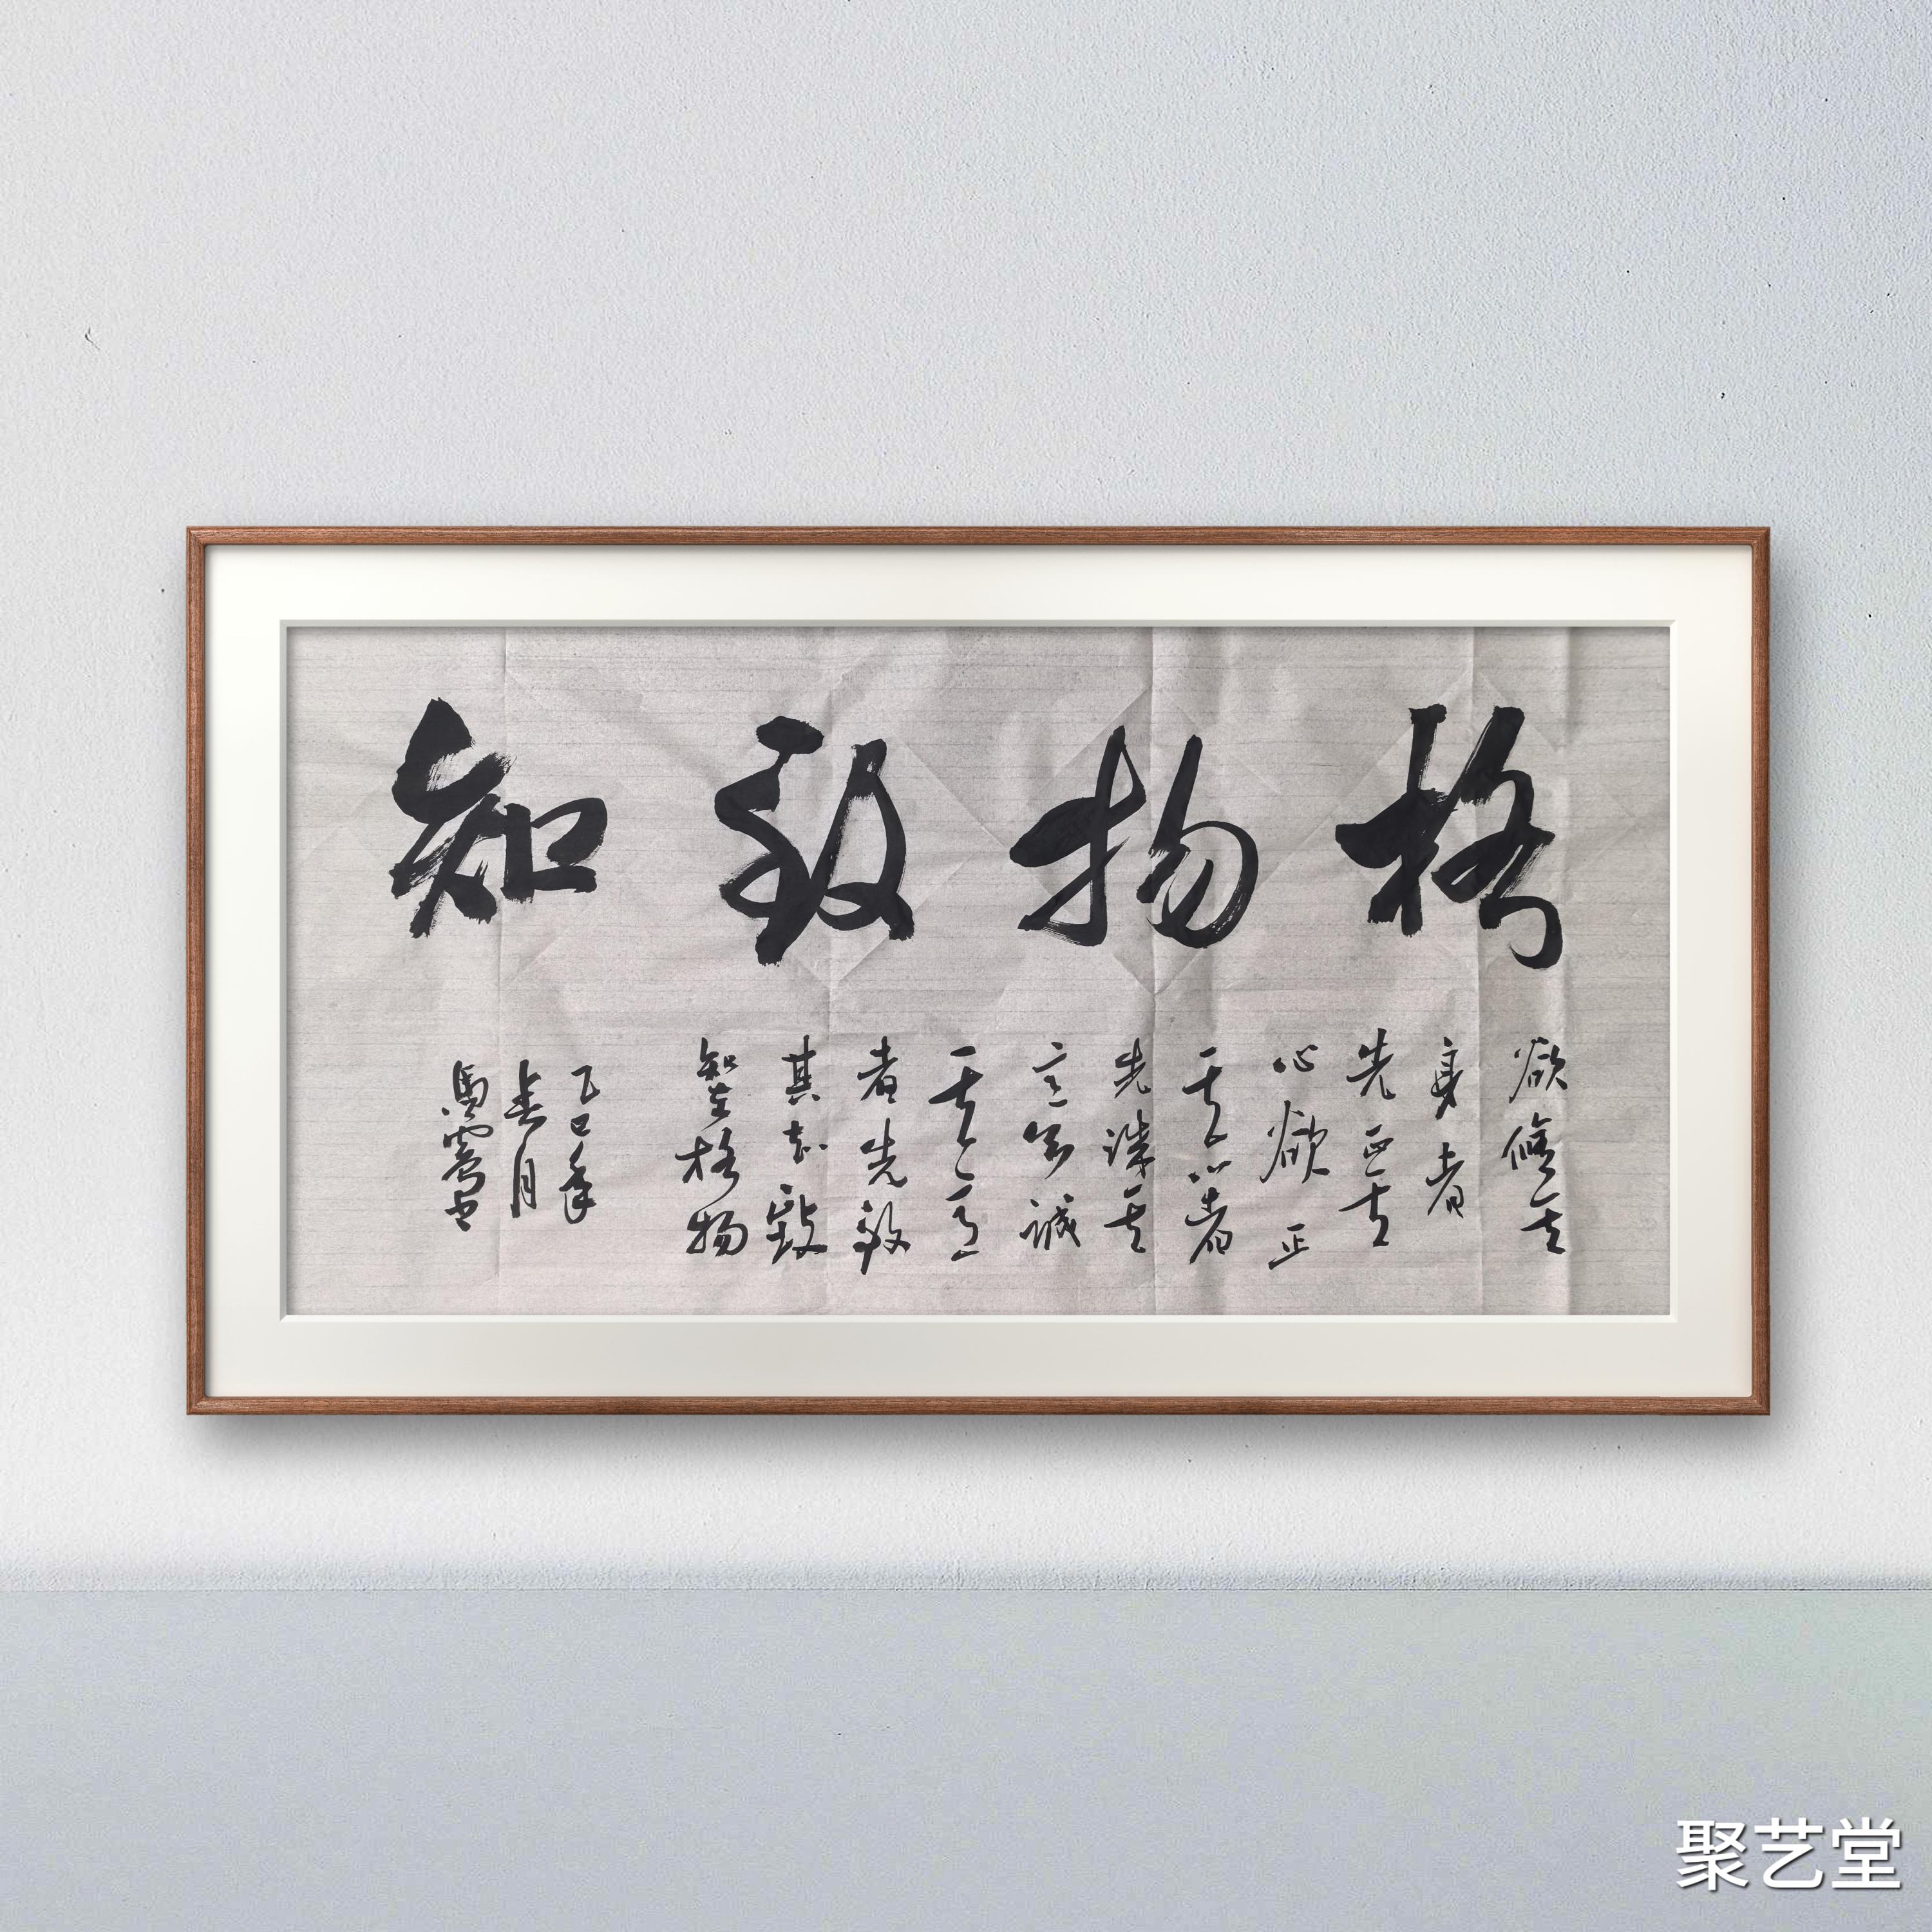 格物致知
欲修其
身者
先正其
心欲正
其心者
先誠其
意欲誠
其意
者先致
其知致
知在格物
乙巳年
春月
馬書
聚艺堂